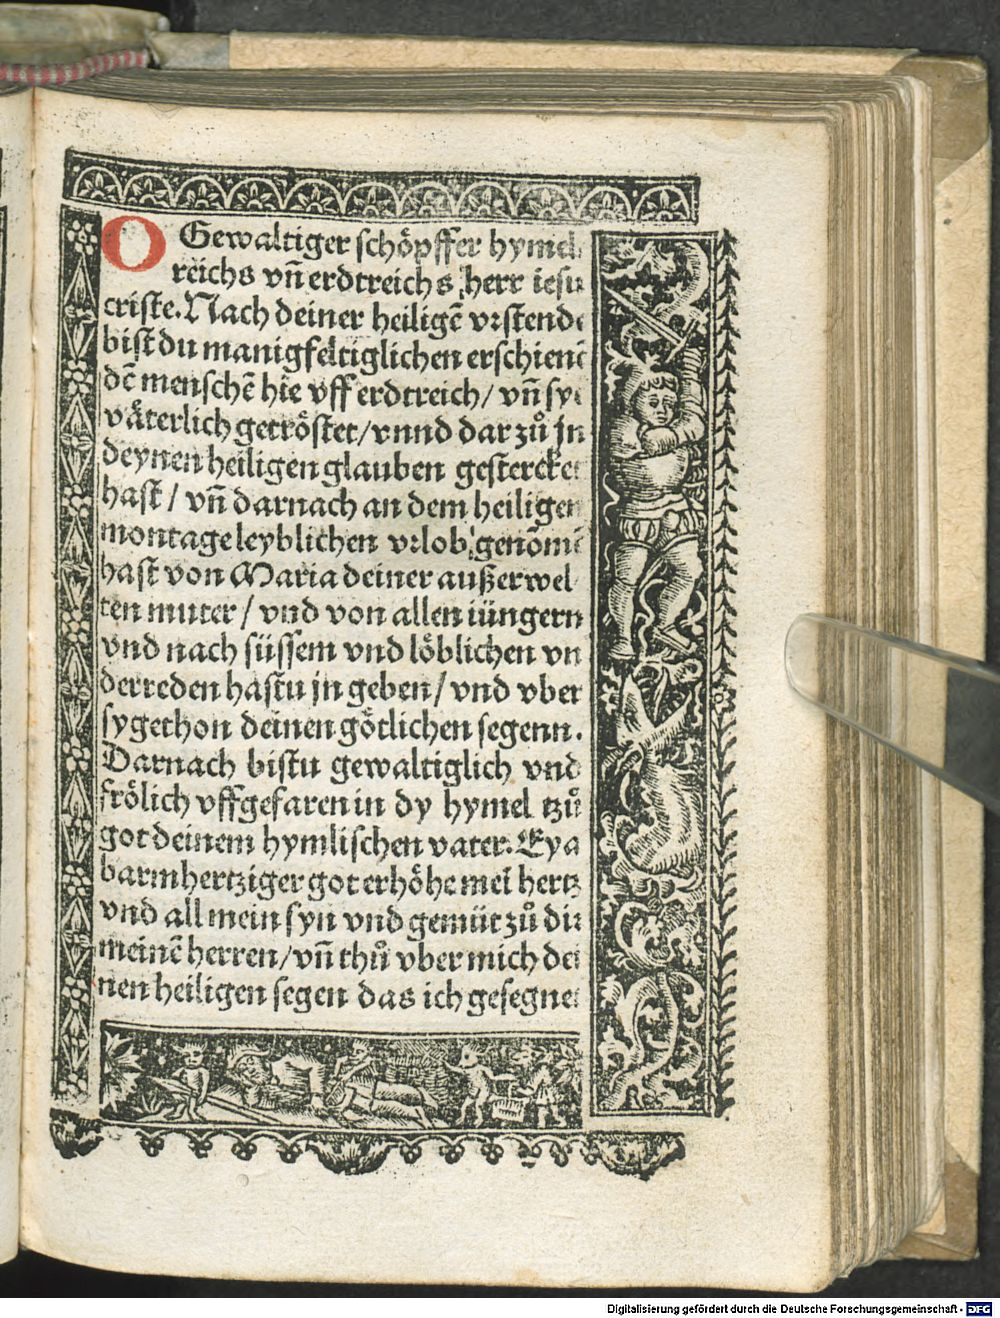 O Gewaltiger schöpffer hymel
reichs vñ erdtreichs herr iesu
criste. Nach deiner heiligē vrstende
bist du manigfeltiglichen erschienē
dē menschē hie vff erdtreich/ vñ sye
väterlich getröstet/ vnnd dar zů jn
deynen heiligen glauben gestercket
hast/ vñ darnach an dem heiligen
montage leyblichen vrlob genōmē
hast von Maria deiner außerwel
ten muter/ vnd von allen iüngern
vnd nach süssem vnd löblichen vn
derreden hastu jn geben/ vnd vber
sy gethon deinen götlichen segenn.
Darnach bistu gewaltiglich vnd
frölich vffgefaren in dy hymel tzů
got deinem hymlischen vater. Eya
barmhertziger got erhöhe meī hertz
vnd all mein syn vnd gemüt zů dir
meinē herren/ vñ thů vber mich dei
nen heiligen segen das ich gesegnet
Digitalisierung gefördert durch die Deutsche Forschungsgemeinschaft - DFG